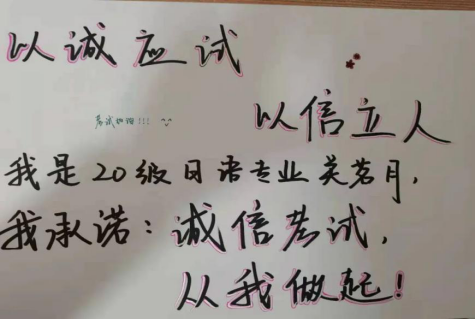 以诚应试
考试加油!!!
以信立人
我是20级日语专业关茗月,
我承诺:诚信考试,
从我做起!